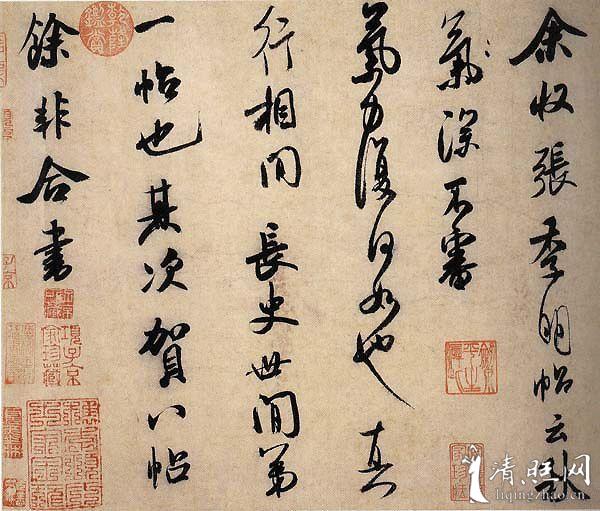 余收張季明帖云秋
氣深不審
氣力復何如也真
行相間長史世間第
一帖也其次賀八帖
餘非合書
乾隆鑑賞
項子京家珍藏
清旺网
liqingzhao.cn